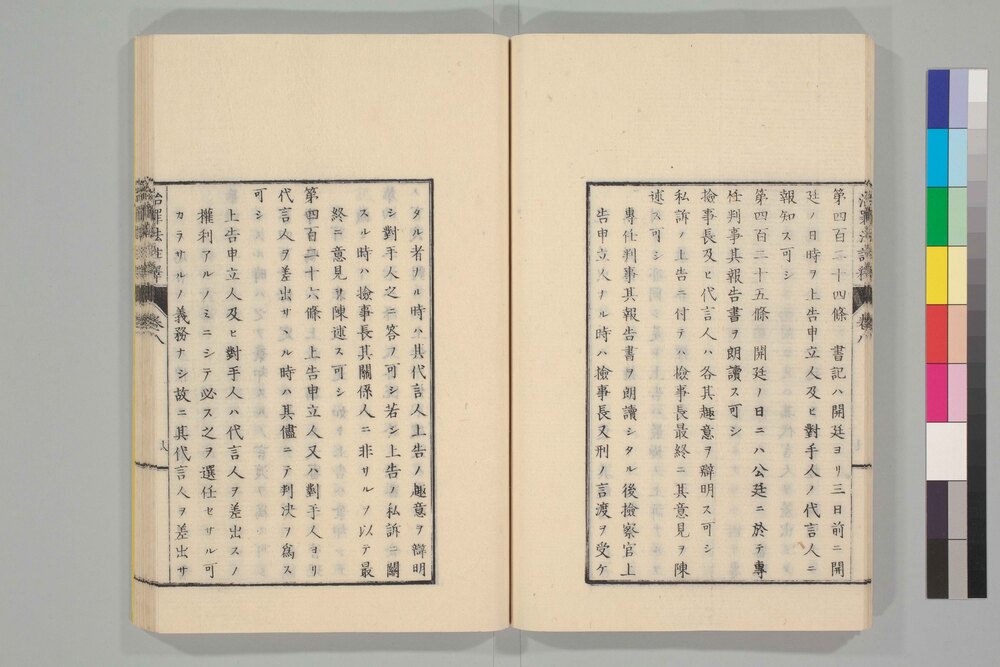 第四百三十四條　書記ハ開廷ヨリ三日前ニ開
廷ノ日時ヲ上告申立人及ヒ對手人ノ代言人ニ
報知ス可シ
第四百三十五條　開廷ノ日ニハ公廷ニ於テ專
任判事其報告書ヲ朗讀ス可シ
檢事長及ヒ代言人ハ各其趣意ヲ辯明ス可シ
私訴ノ上告ニ付テハ檢事長最終ニ其意見ヲ陳
述ス可シ
專任判事其報告書ヲ朗讀シタル後檢察官上
告申立人ナル時ハ檢事長又刑ノ言渡ヲ受ケ
タル者ナル時ハ其代言人上告ノ趣意ヲ辯明
シ對手人之ニ答フ可シ若シ上告ノ私訴ニ關
スル時ハ檢事長其關係人ニ非サルヲ以テ最
終ニ意見ヲ陳述ス可シ
第四百三十六條　上告申立人又ハ對手人ヨリ
代言人ヲ差出サヽル時ハ其儘ニテ判決ヲ爲ス
可シ
上告申立人及ヒ對手人ハ代言人ヲ差出スノ
權利アルノミニシテ必ス之ヲ選任セサル可
カラサルノ義務ナシ故ニ其代言人ヲ差出サ
治罪法註釋
卷八